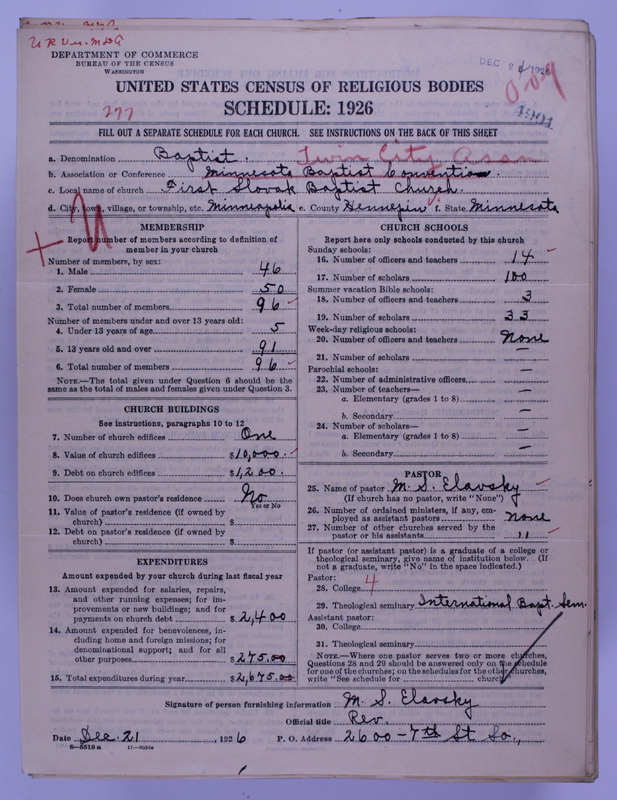 DEPARTMENT OF COMMERCE
BUREAU OF THE CENSUS
WASHINGTON
DEC 24 1926
1904
UNITED STATES CENSUS OF RELIGIOUS BODIES
SCHEDULE: 1926
277
FILL OUT A SEPARATE SCHEDULE FOR EACH CHURCH. SEE INSTRUCTIONS ON THE BACK OF THIS SHEET
a. Denomination Baptist. Twin City Assn
b. Association or Conference Minnesota Baptist Convention.
c. Local name of church First Slovak Baptist Church.
d. City, town, village, or township, etc. Minneapolis e. County Hennepin f. State Minnesota
MEMBERSHIP
Report number of members according to definition of member in your church
Number of members, by sex:
1. Male 46
2. Female 50
3. Total number of members 96
Number of members under and over 13 years old:
4. Under 13 years of age 5
5. 13 years old and over 91
6. Total number of members 96
NOTE.—The total given under Question 6 should be the
same as the total of males and females given under Question 3.
CHURCH BUILDINGS
See instructions, paragraphs 10 to 12
7. Number of church edifices One
8. Value of church edifices $10,000.
9. Debt on church edifices $1,200.
10. Does church own pastor's residence No
Yes or No
11. Value of pastor's residence (if owned by
church) $
12. Debt on pastor's residence (if owned by
church) $
EXPENDITURES
Amount expended by your church during last fiscal year
13. Amount expended for salaries, repairs,
and other running expenses; for im-
provements or new buildings; and for
payments on church debt $2,400
14. Amount expended for benevolences, in-
cluding home and foreign missions; for
denominational support; and for all
other purposes $275.00
15. Total expenditures during year $2,675.00
CHURCH SCHOOLS
Report here only schools conducted by this church
Sunday schools:
16. Number of officers and teachers 14
17. Number of scholars 100
Summer vacation Bible schools:
18. Number of officers and teachers 3
19. Number of scholars 33
Week-day religious schools:
20. Number of officers and teachers None
21. Number of scholars —
Parochial schools:
22. Number of administrative officers —
23. Number of teachers—
a. Elementary (grades 1 to 8) —
b. Secondary —
24. Number of scholars—
a. Elementary (grades 1 to 8) —
b. Secondary —
PASTOR
25. Name of pastor M. S. Elavsky
(If church has no pastor, write "None")
26. Number of ordained ministers, if any, em-
ployed as assistant pastors None
27. Number of other churches served by the
pastor or his assistants 11
If pastor (or assistant pastor) is a graduate of a college or
theological seminary, give name of institution below. (If
not a graduate, write "No" in the space indicated.)
Pastor:
28. College 4
29. Theological seminary International Bapt. Sem.
Assistant pastor:
30. College
31. Theological seminary
NOTE.—Where one pastor serves two or more churches,
Questions 28 and 29 should be answered only on the schedule
for one of the churches; on the schedules for the other churches,
write "See schedule for church"
Signature of person furnishing information M. S. Elavsky
Official title Rev.
Date Dec. 21, 1926 P. O. Address 2600-7th St So.,
8—5518a 11—9024a